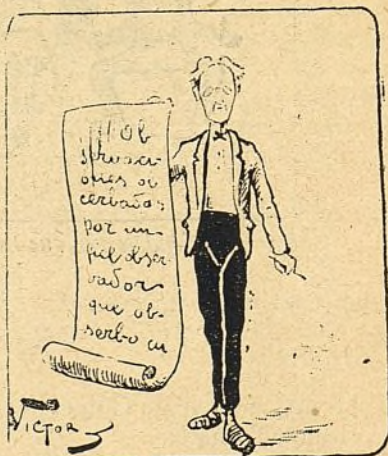 ¡¡Ob
servaci
ones ob
cerbadas
por un
fiel obser
bador
que ob-
serbo en
VICTOR